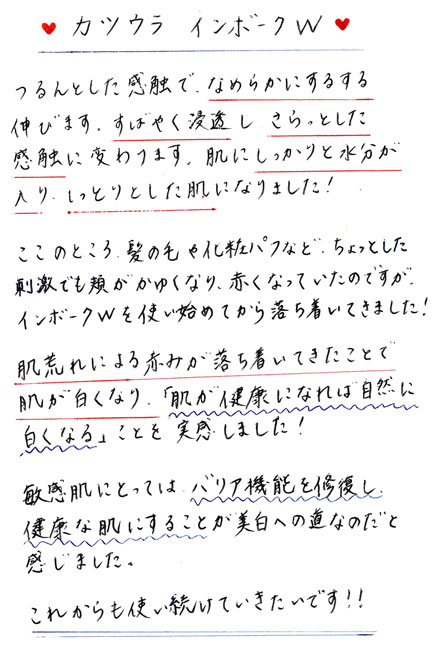 ♥ カツウラ インボークW ♥
つるんとした感触で、なめらかにするする
伸びます。すばやく浸透し、さらっとした
感触に変わります。肌にしっかりと水分が
入り、しっとりとした肌になりました!
ここのところ、髪の毛や化粧パフなど、ちょっとした
刺激でも頬がかゆくなり、赤くなっていたのですが、
インボークWを使い始めてから落ち着いてきました!
肌荒れによる赤みが落ち着いてきたことで
肌が白くなり、「肌が健康になれば自然に
白くなる」ことを実感しました!
敏感肌にとっては、バリア機能を修復し、
健康な肌にすることが美白への道なのだと
感じました。
これからも使い続けていきたいです!!